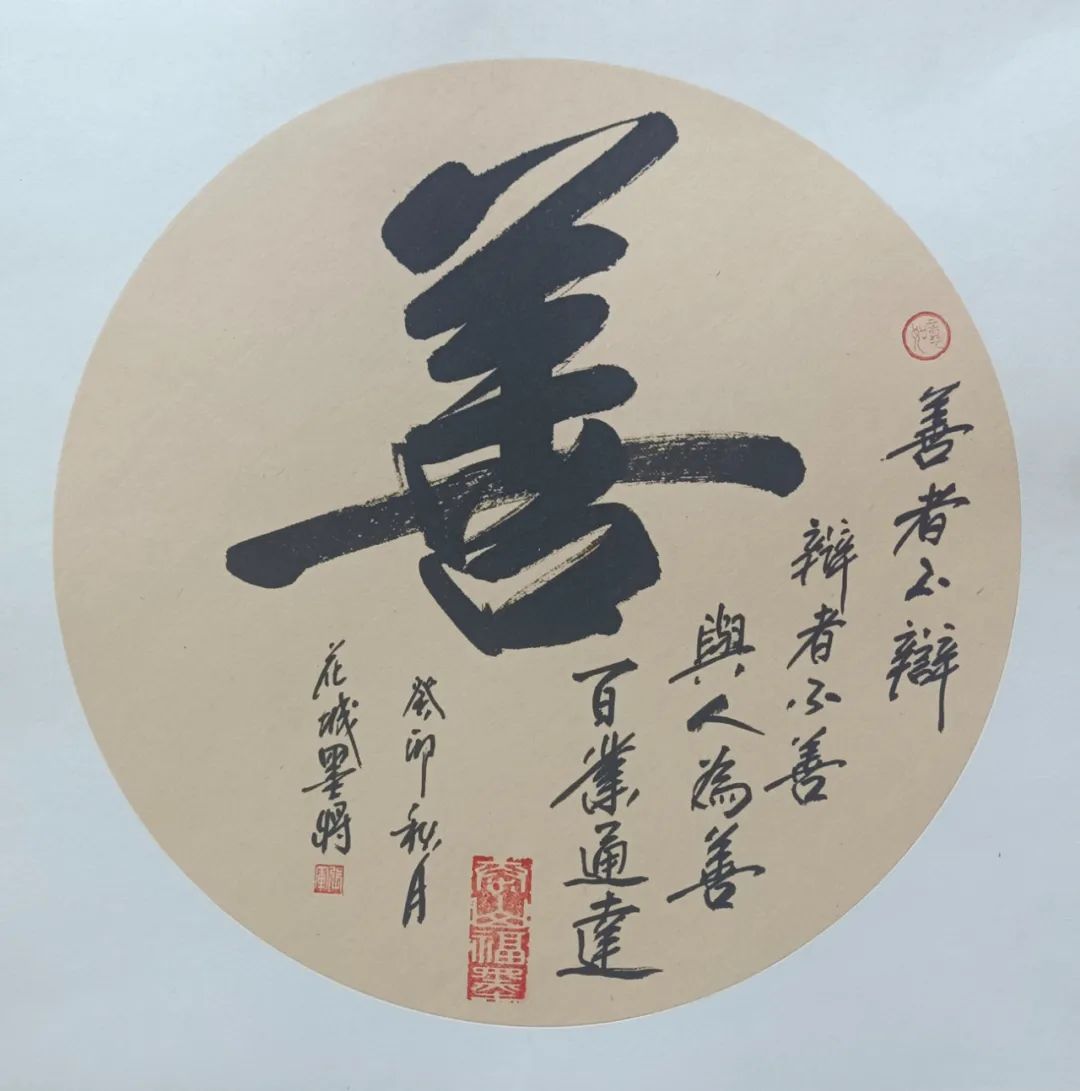 善
善者不辯
辯者不善
與人為善
百業通達
癸卯秋月
花城墨將